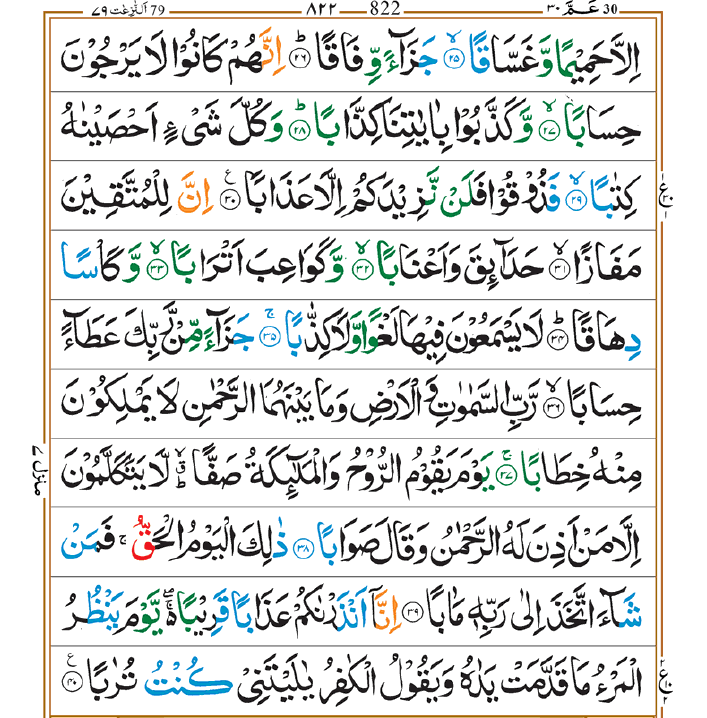 30 عَمَّ ٣٠ 822 ٨٢٢ 79 اَلنّٰزِعٰت ٧٩
اِلَّا حَمِيْمًا وَّ غَسَّاقًا ۙ‏﴿۲۵﴾ جَزَآءً وِّفَاقًا ؕ‏﴿۲۶﴾ اِنَّهُمْ كَانُوْا لَا يَرْجُوْنَ
حِسَابًا ۙ‏﴿۲۷﴾ وَّ كَذَّبُوْا بِاٰيٰتِنَا كِذَّابًا ؕ‏﴿۲۸﴾ وَ كُلَّ شَیْءٍ اَحْصَيْنٰهُ
كِتٰبًا ۙ‏﴿۲۹﴾ فَذُوْقُوْا فَلَنْ نَّزِيْدَكُمْ اِلَّا عَذَابًا ‏﴿۳۰﴾ ع اِنَّ لِلْمُتَّقِيْنَ
مَفَازًا ۙ‏﴿۳۱﴾ حَدَآئِقَ وَ اَعْنَابًا ۙ‏﴿۳۲﴾ وَّ كَوَاعِبَ اَتْرَابًا ۙ‏﴿۳۳﴾ وَّ كَاْسًا
دِهَاقًا ؕ‏﴿۳۴﴾ لَا يَسْمَعُوْنَ فِيْهَا لَغْوًا وَّ لَا كِذّٰبًا ۚ‏﴿۳۵﴾ جَزَآءً مِّنْ رَّبِّكَ عَطَآءً
حِسَابًا ۙ‏﴿۳۶﴾ رَّبِّ السَّمٰوٰتِ وَ الْاَرْضِ وَ مَا بَيْنَهُمَا الرَّحْمٰنِ لَا يَمْلِكُوْنَ
مِنْهُ خِطَابًا ۚ‏﴿۳۷﴾ يَوْمَ يَقُوْمُ الرُّوْحُ وَ الْمَلٰٓئِكَةُ صَفًّا ۙۗ لَّا يَتَكَلَّمُوْنَ
منزل ٧
اِلَّا مَنْ اَذِنَ لَهُ الرَّحْمٰنُ وَ قَالَ صَوَابًا ‏﴿۳۸﴾ ذٰلِكَ الْيَوْمُ الْحَقُّ ۚ فَمَنْ
شَآءَ اتَّخَذَ اِلٰى رَبِّهٖ مَاٰبًا ‏﴿۳۹﴾ اِنَّاۤ اَنْذَرْنٰكُمْ عَذَابًا قَرِيْبًا ۖۚ يَّوْمَ يَنْظُرُ
الْمَرْءُ مَا قَدَّمَتْ يَدٰهُ وَ يَقُوْلُ الْكٰفِرُ يٰلَيْتَنِیْ كُنْتُ تُرٰبًا ‏﴿۴۰﴾ ع